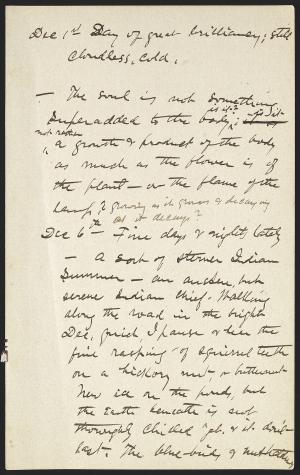 Dec 1st Day of great brilliancy; still
cloudless, cold.
— The soul is not something
superadded to the body; is it? is it
not rather
a growth & product of the body
as much as the flower is of
the plant — or the flame of the
lamp, & growing as it grows & decaying
as it decays?
Dec 6th — Fine days & nights lately
— A sort of sterner Indian
Summer — an austere, but
serene Indian chief. Walking
along the road in the bright
Dec. I pause & hear the
fine rasping of squirrel teeth
on a hickory nut, or butternut
New ice on the ponds, but
the Earth beneath is not
thoroughly chilled yet & it don't
last. The blue-birds & nuthatches